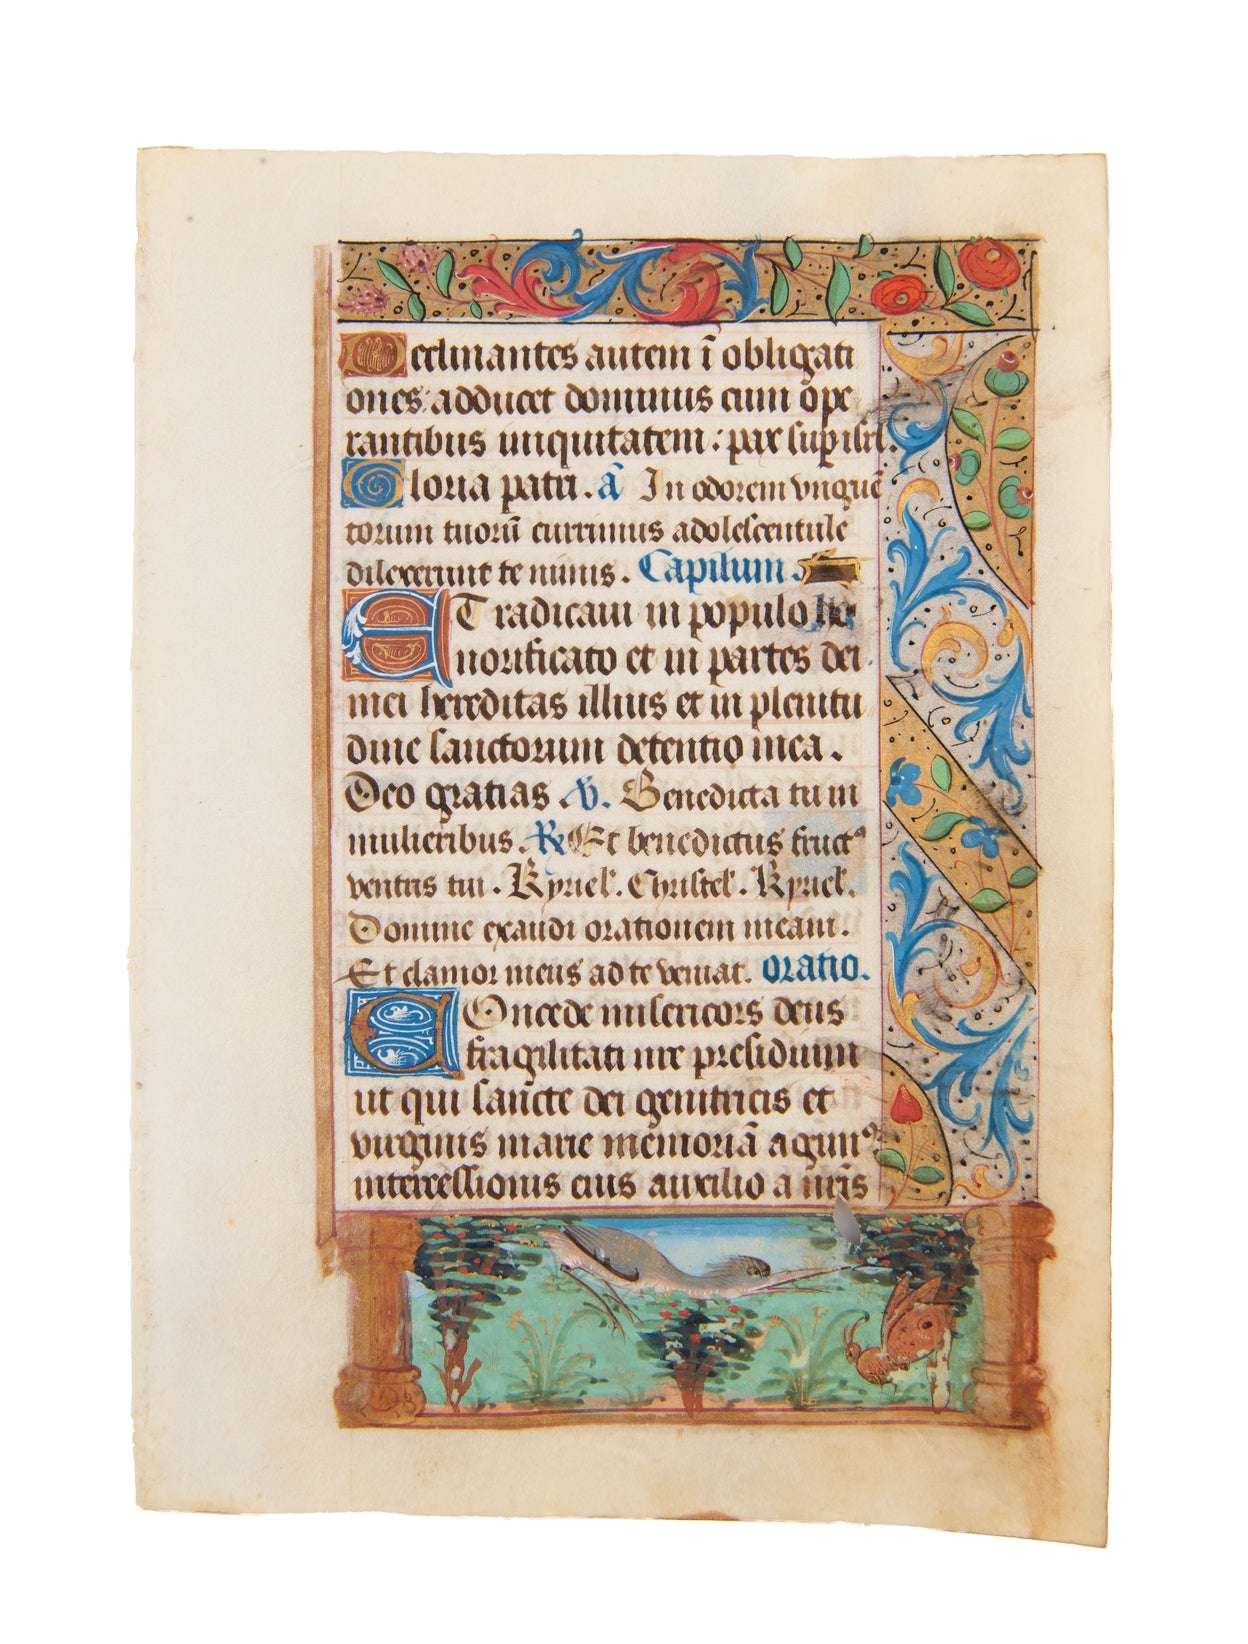 Declinantes autem ī obligati
ones adducet dominus cum ope
rantibus iniquitatem : pax sup isrl.
Gloria patri. ā In odorem vnguē
torum tuorū currimus adolescentule
dilexerunt te nimis. Capitlum.
ET radicaui in populo ho
norificato et in partes dei
mei hereditas illius et in plenitu
dine sanctorum detentio mea.
Deo gratias ℣. Benedicta tu in
mulieribus. ℟ Et benedictus fructꝰ
ventris tui. Kyriel. Christel. Kyriel.
Domine exaudi orationem meam.
Et clamor meus ad te veniat. oratio.
COncede misericors deus
fragilitati nre presidium
ut qui sancte dei genitricis et
virginis marie memoriā agimꝰ
intercessionis eius auxilio a nris